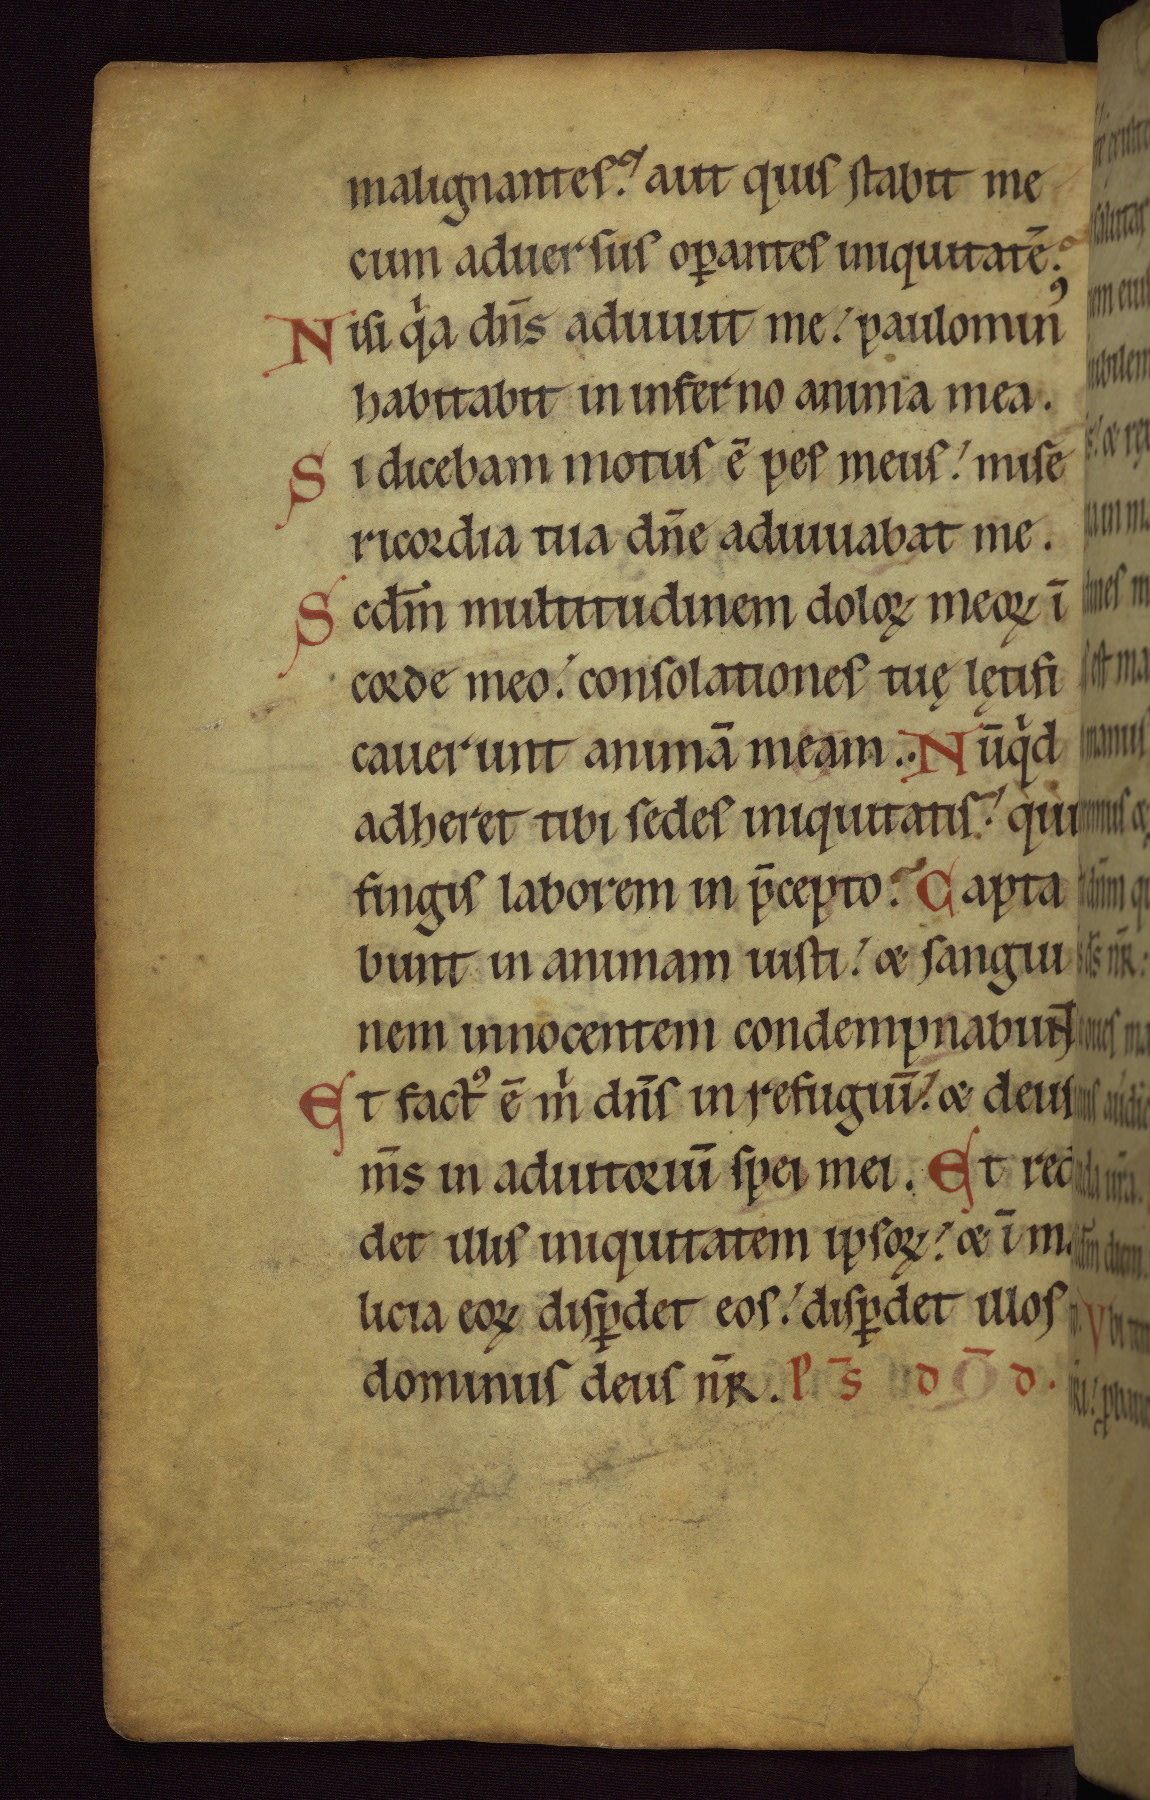 malignantes? aut quis stabit me
cum aduersus oꝑantes iniquitatē?
Nisi qͥa dn̄s adiuuit me: paulominꝰ
habitabit in inferno anima mea.
Si dicebam motus ē pes meus: mise
ricordia tua dn̄e adiuuabat me.
Scdm̄ multitudinem doloꝝ meoꝝ ī
corde meo: consolationes tuę lętifi
cauerunt animā meam. Nūqͥd
adheret tibi sedes iniquitatis: qui
fingis laborem in p̄cepto? Capta
bunt in animam iusti: & sangui
nem innocentem condempnabunt
Et factꝰ ē mͥ dn̄s in refugiū: & deus
m̄s in adiutoriū spei mei. Et red
det illis iniquitatem ipsoꝝ: & ī ma
licia eoꝝ disꝑdet eos: disꝑdet illos
dominus deus nr̄. P s̄ d D̄ d.